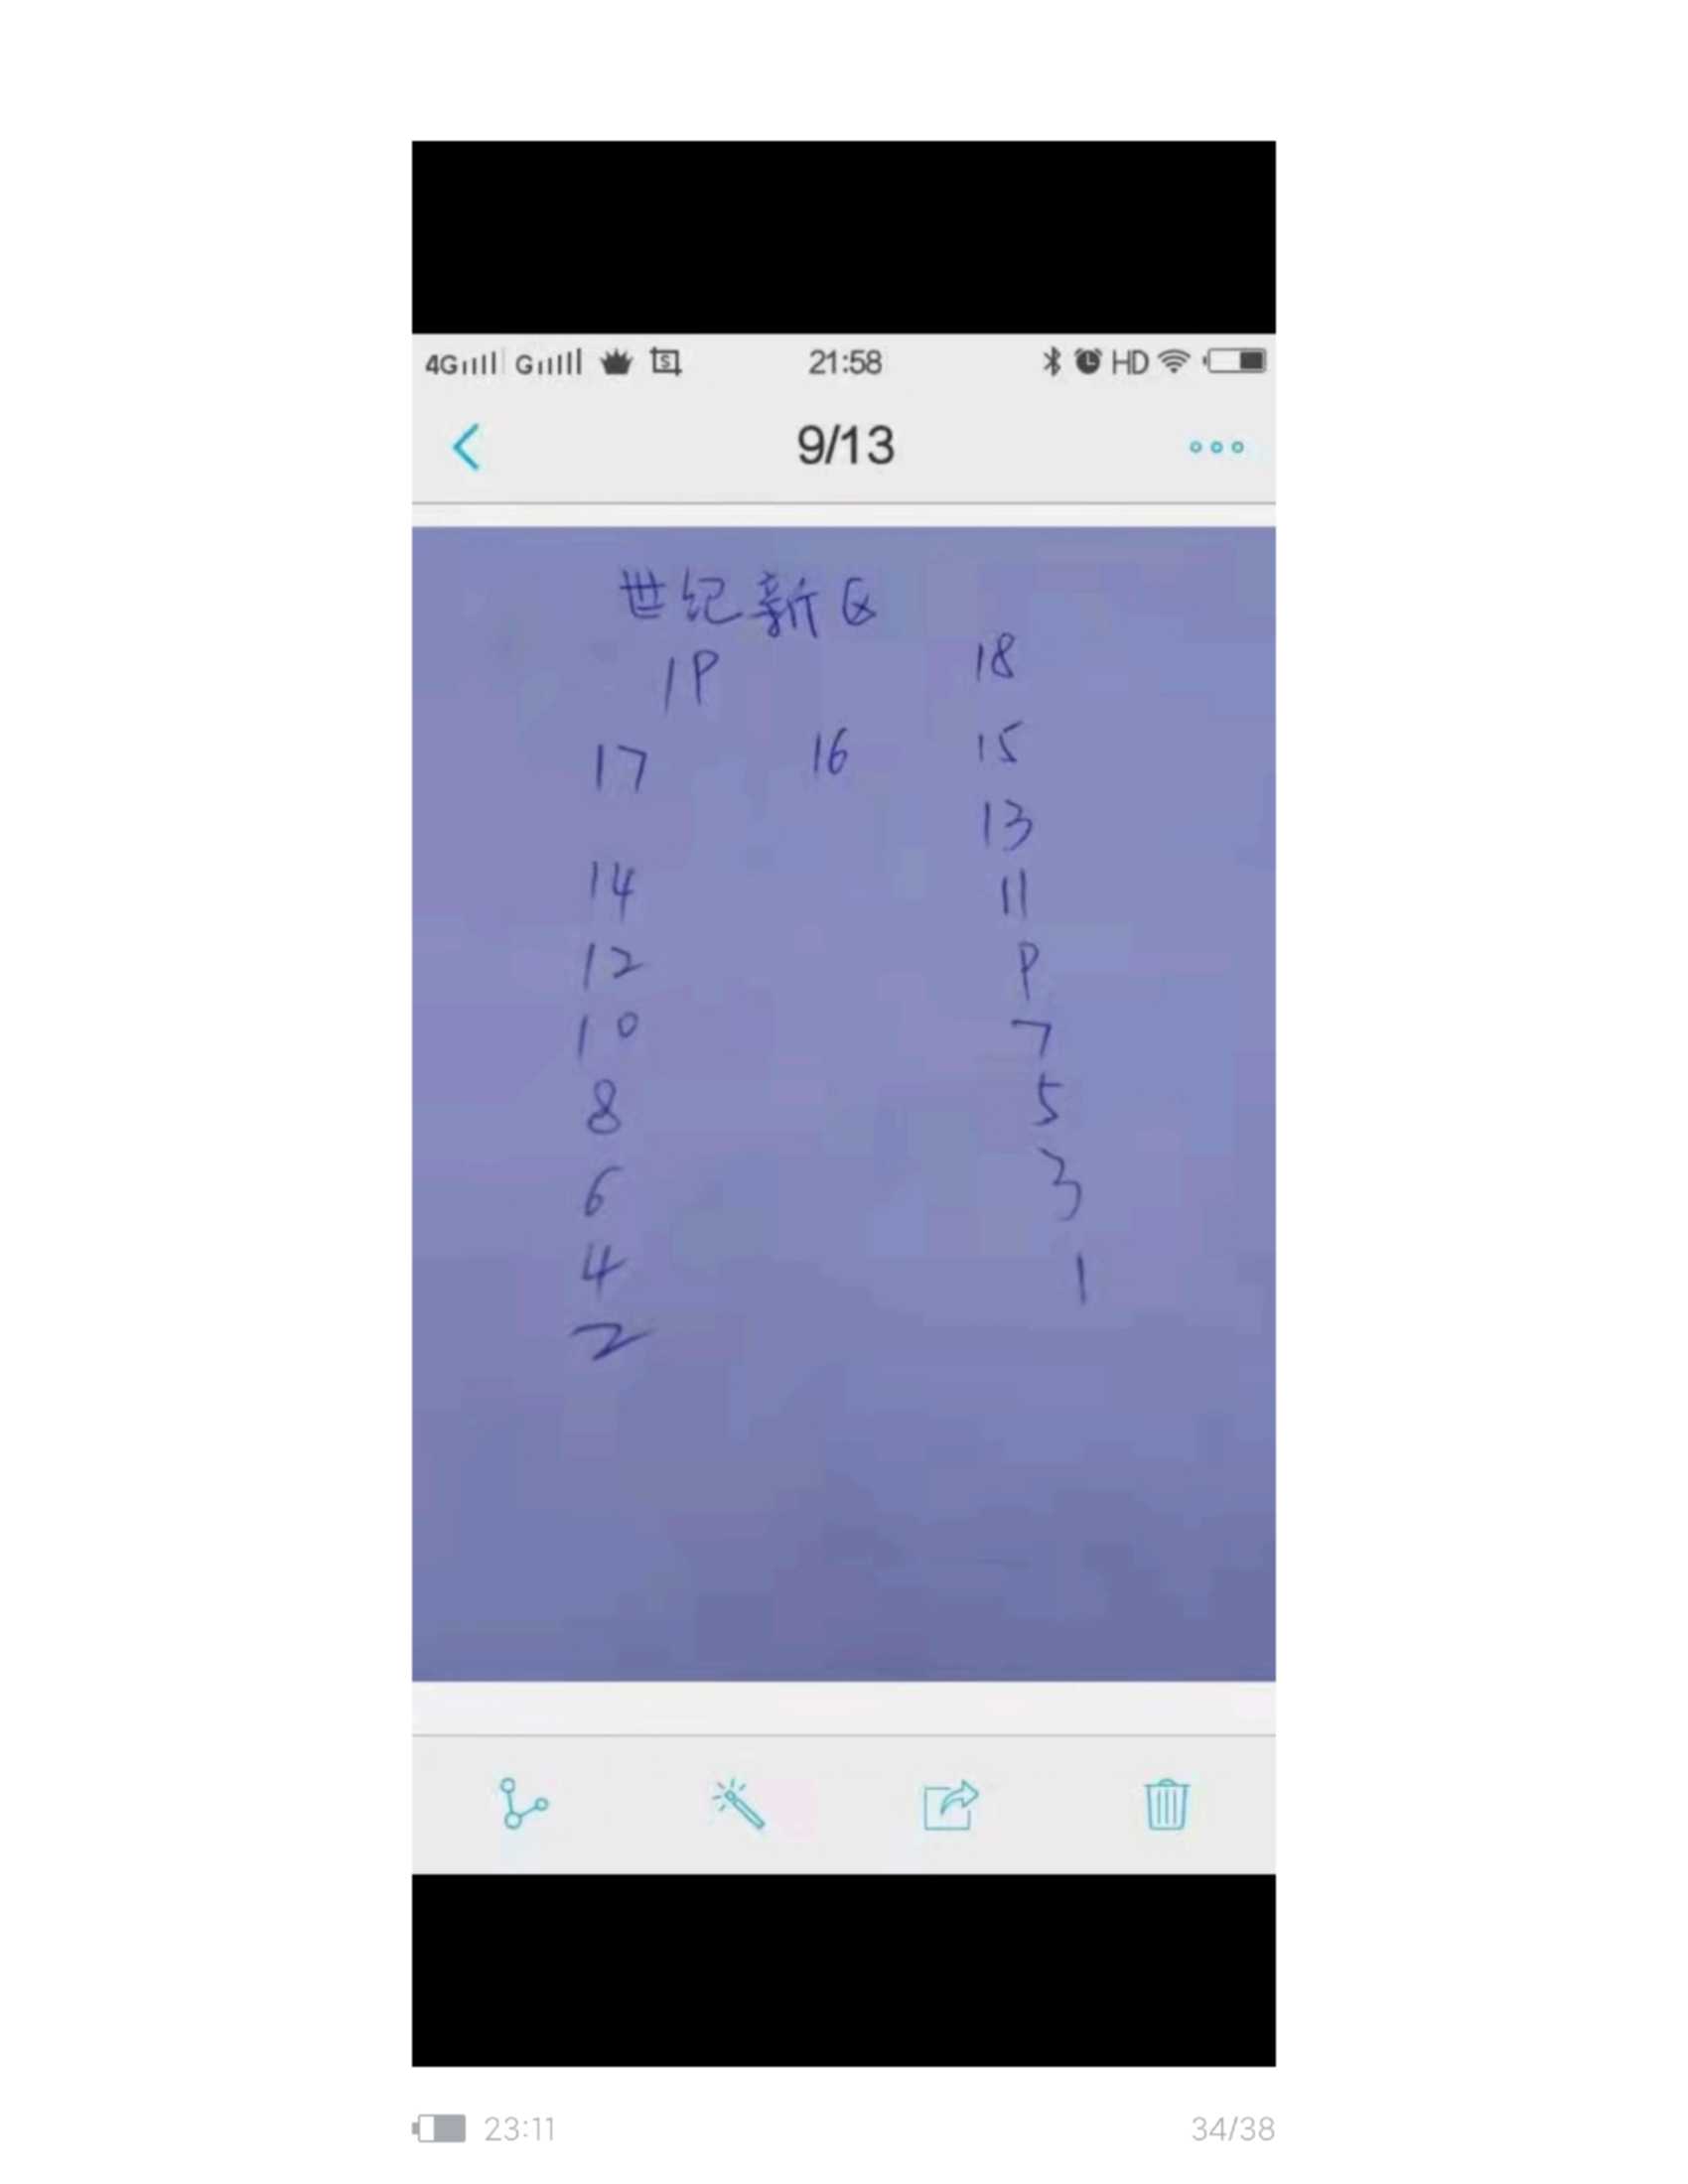 4G G 21:58 HD
9/13
世纪新区
19 18
17 16 15
13
14 11
12 9
10 7
8 5
6 3
4 1
2
23:11 34/38